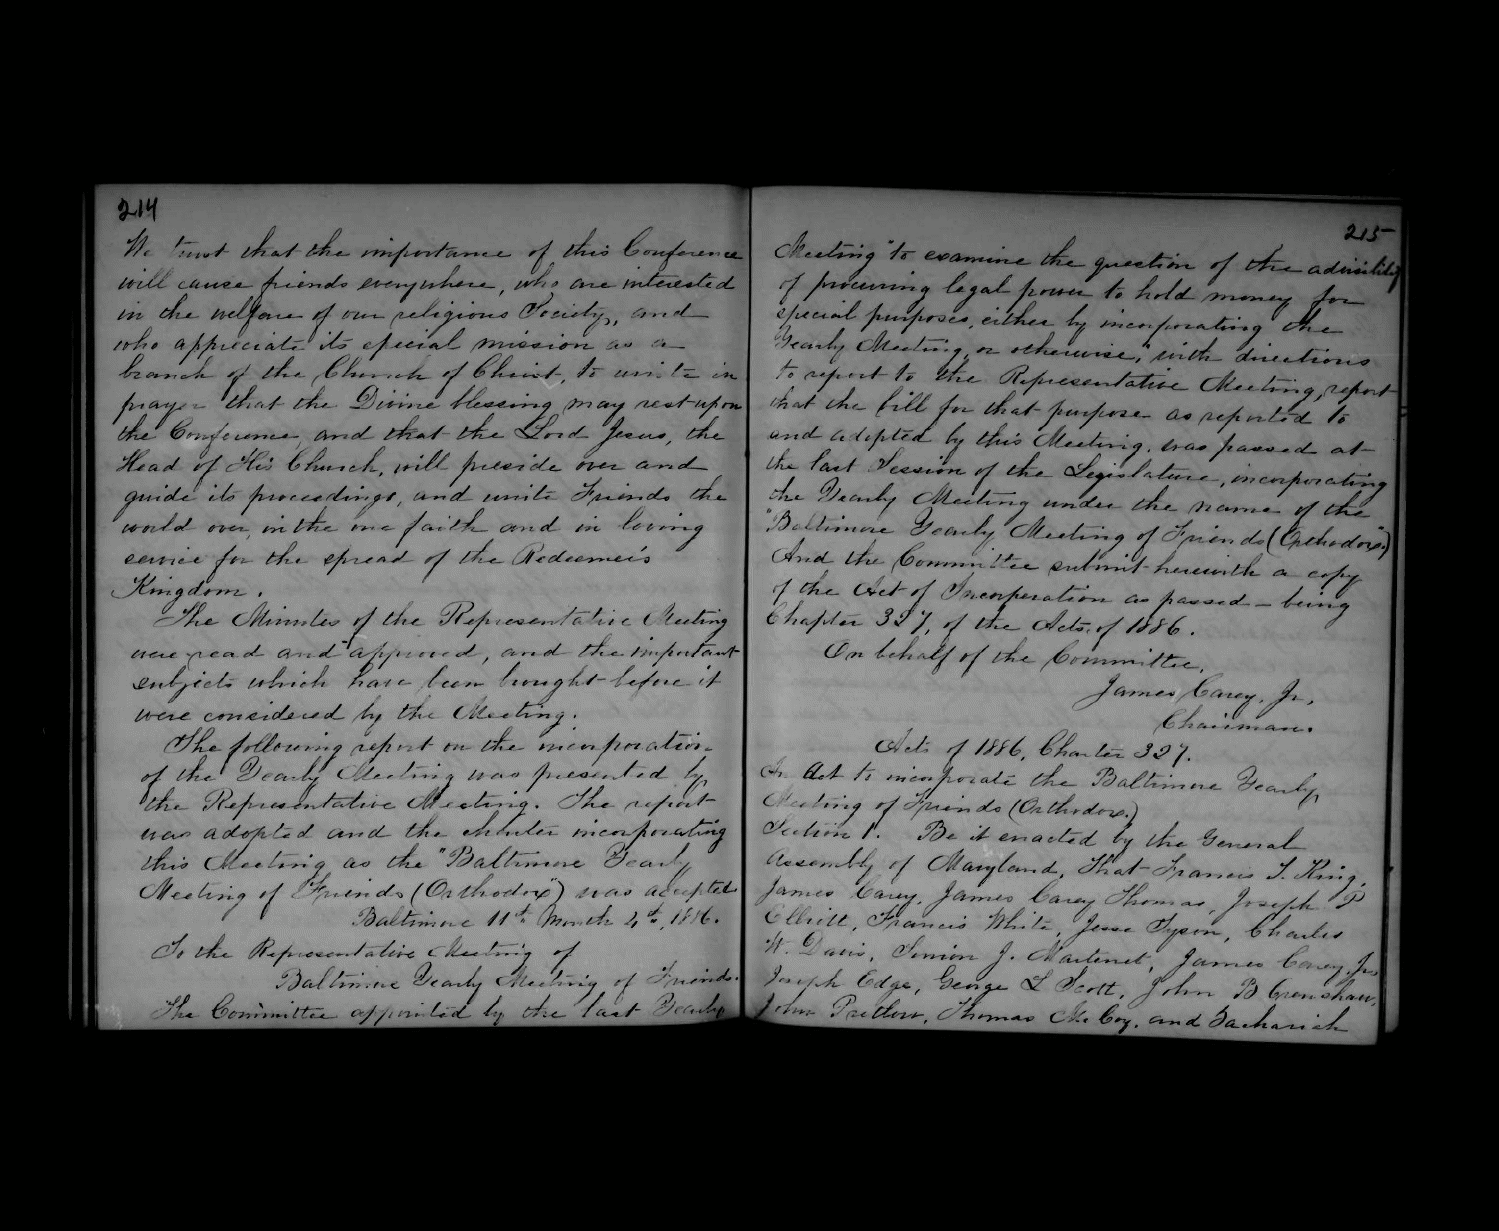 214
We trust that the importance of this Conference
will cause friends everywhere, who are interested
in the welfare of our religious Society, and
who appreciate its special mission as a
branch of the Church of Christ, to unite in
prayer that the Divine blessing may rest upon
the Conference, and that the Lord Jesus, the
Head of His Church, will preside over and
guide its proceedings, and unite Friends the
world over, in the one faith and in loving
service for the spread of the Redeemer's
Kingdom.
The Minutes of the Representative Meeting
were read and approved, and the important
subjects which have been brought before it
were considered by the Meeting.
The following report on the incorporation
of the Yearly Meeting was presented by
the Representative Meeting. The report
was adopted and the charter incorporating
this Meeting as the "Baltimore Yearly
Meeting of Friends (Orthodox") was accepted
Baltimore 11th Month 4th, 1886.
To the Representative Meeting of
Baltimore Yearly Meeting of Friends.
The Committee appointed by the last Yearly
215
Meeting "to examine the question of the advisibility
of procuring legal power to hold money for
special purposes, either by incorporating the
Yearly Meeting, or otherwise," with directions
to report to the Representative Meeting, report
that the bill for that purpose as reported to
and adopted by this Meeting, was passed at
the last Session of the Legislature, incorporating
the Yearly Meeting under the name of the
"Baltimore Yearly Meeting of Friends (Orthodox".)
And the Committee submit herewith a copy
of the Act of Incorporation as passed – being
Chapter 327, of the Acts of 1886.
On behalf of the Committee,
James Carey, Jr,
Chairman.
Acts of 1886, Charter 327.
An Act to incorporate the Baltimore Yearly
Meeting of Friends (Orthodox.)
Section 1. Be it enacted by the General
Assembly of Maryland, That Francis T. King,
James Carey, James Carey Thomas, Joseph P
Elliott, Francis White, Jesse Tyson, Charles
W. Davis, Simon J. Martenet, James Carey, Jr,
Joseph Edge, George L Scott, John B Crenshaw,
John Pretlow, Thomas McCoy, and Zachariah